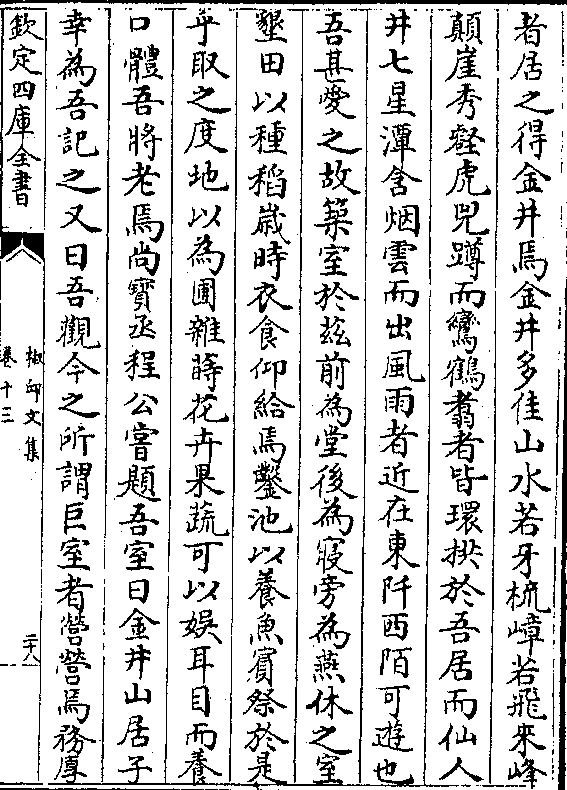 者居之得金井焉金井多佳山水若牙梳嶂若飛來峰
顛崖秀壑虎兕蹲而鸞鶴翥者皆環拱於吾居而仙人
井七星潭含烟雲而出風雨者近在東阡西陌可遊也
吾甚愛之故築室於兹前為堂後為寢旁為燕休之室
墾田以種稻嵗時衣食仰給焉鑿池以養魚賓祭於是
乎取之度地以為圃雜蒔花卉果蔬可以娛耳目而養
口體吾將老焉尚寳丞程公嘗題吾室曰金井山居子
幸為吾記之又曰吾觀今之所謂巨室者營營焉務厚
欽定四庫全書
椒邱文集
卷十三
二十八